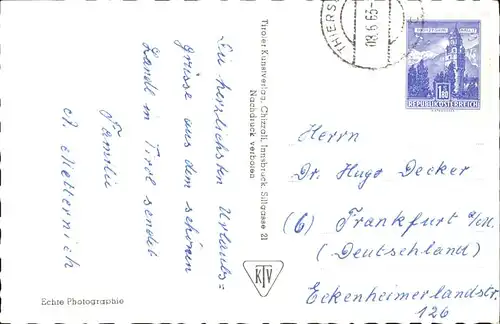 Die herzlichsten Urlaubs=
grüsse aus dem schönen
Landl in Tirol sendet
Familie
A. Metternich
Echte Photographie
Tiroler Kunstverlag, Chizzali, Innsbruck, Sillgasse 21
Nachdruck verboten
KTV
THIERS
08.6.65-
1.80
REPUBLIK ÖSTERREICH
Herrn
Dr. Hugo Decker
(6) Frankfurt a/M.
(Deutschland)
Eckenheimerlandstr.
126